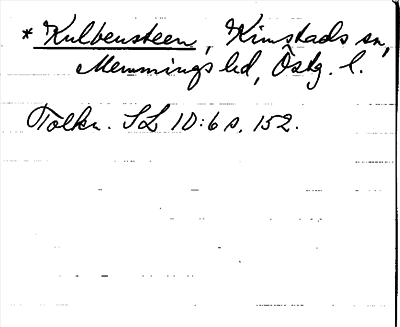 * Kulbensteen, Kimstads sn,
Memmings hd, Östg. l.
Tolkn. SL 10:6 s. 152.